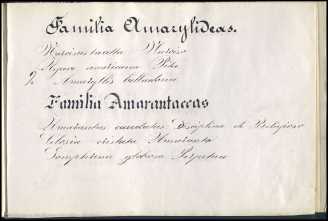 Familia Amarylídeas.
Narcisus tacetta Narciso
Agave americana Pita
2 Amaryllis belladona
Familia Amarantaceas
Amarantus caudatus Disciplina de Religioso
Celosia cristata Amaranto
Gomphrena globosa Perpetua